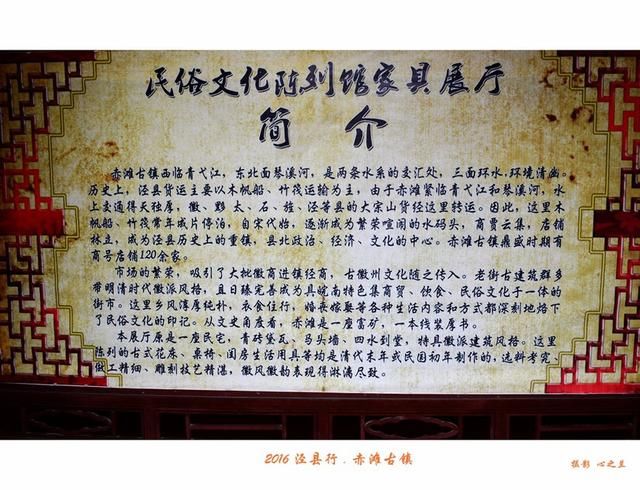 民俗文化陈列馆家具展厅
简 介
赤滩古镇西临青弋江，东北面琴溪河，是两条水系的交汇处，三面环水，环境清幽。
历史上，泾县货运主要以木帆船、竹筏运输为主，由于赤滩紧临青弋江和琴溪河，水
上交通得天独厚，徽、黟、太、石、旌、泾等县的大宗山货经这里转运。因此，这里木
帆船、竹筏常年成片停泊，自宋代始，逐渐成为繁荣喧闹的水码头，商贾云集，店铺
林立，成为泾县历史上的重镇，县北政治、经济、文化的中心。赤滩古镇鼎盛时期有
商号店铺120余家。
市场的繁荣，吸引了大批徽商进镇经商，古徽州文化随之传入。老街古建筑群多
带明清时代徽派风格，且日臻完善成为具皖南特色集商贸、饮食、民俗文化于一体的
街市。这里乡风淳厚纯朴，衣食住行，婚丧嫁娶等各种生活内容和方式都深刻地烙下
了民俗文化的印记。从文史角度看，赤滩是一座富矿，一本线装厚书。
本展厅原是一座民宅，青砖黛瓦、马头墙、四水到堂，特具徽派建筑风格。这里
陈列的古式花床、桌椅、闺房生活用具等均是清代末年或民国初年制作的，选料考究、
做工精细、雕刻技艺精湛，徽风徽韵表现得淋漓尽致。
2016 泾县行．赤滩古镇
摄影 心之兰